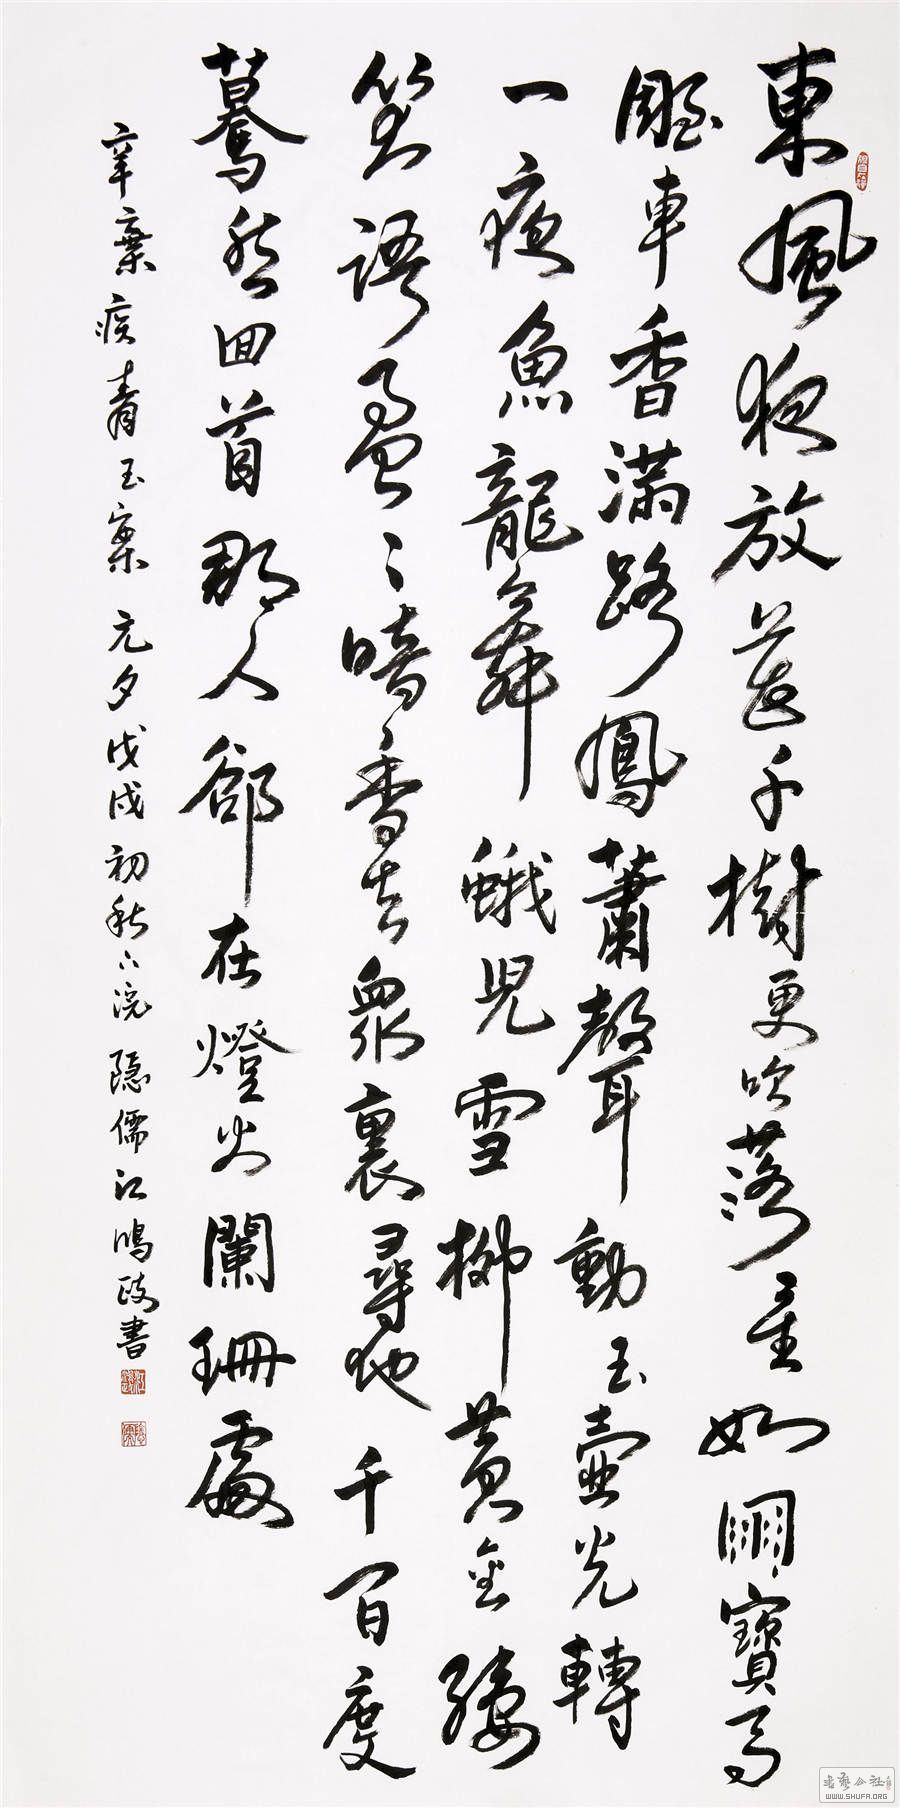 東風夜放花千樹更吹落星如雨寶馬
雕車香滿路鳳蕭聲動玉壺光轉
一夜魚龍舞蛾兒雪柳黃金縷
笑語盈〻暗香去眾裏尋他千百度
驀然回首那人卻在燈火闌珊處
辛棄疾青玉案元夕戊戌初秋六浣隐儒江鴻政書
书艺公社
WWW.SHUFA.ORG